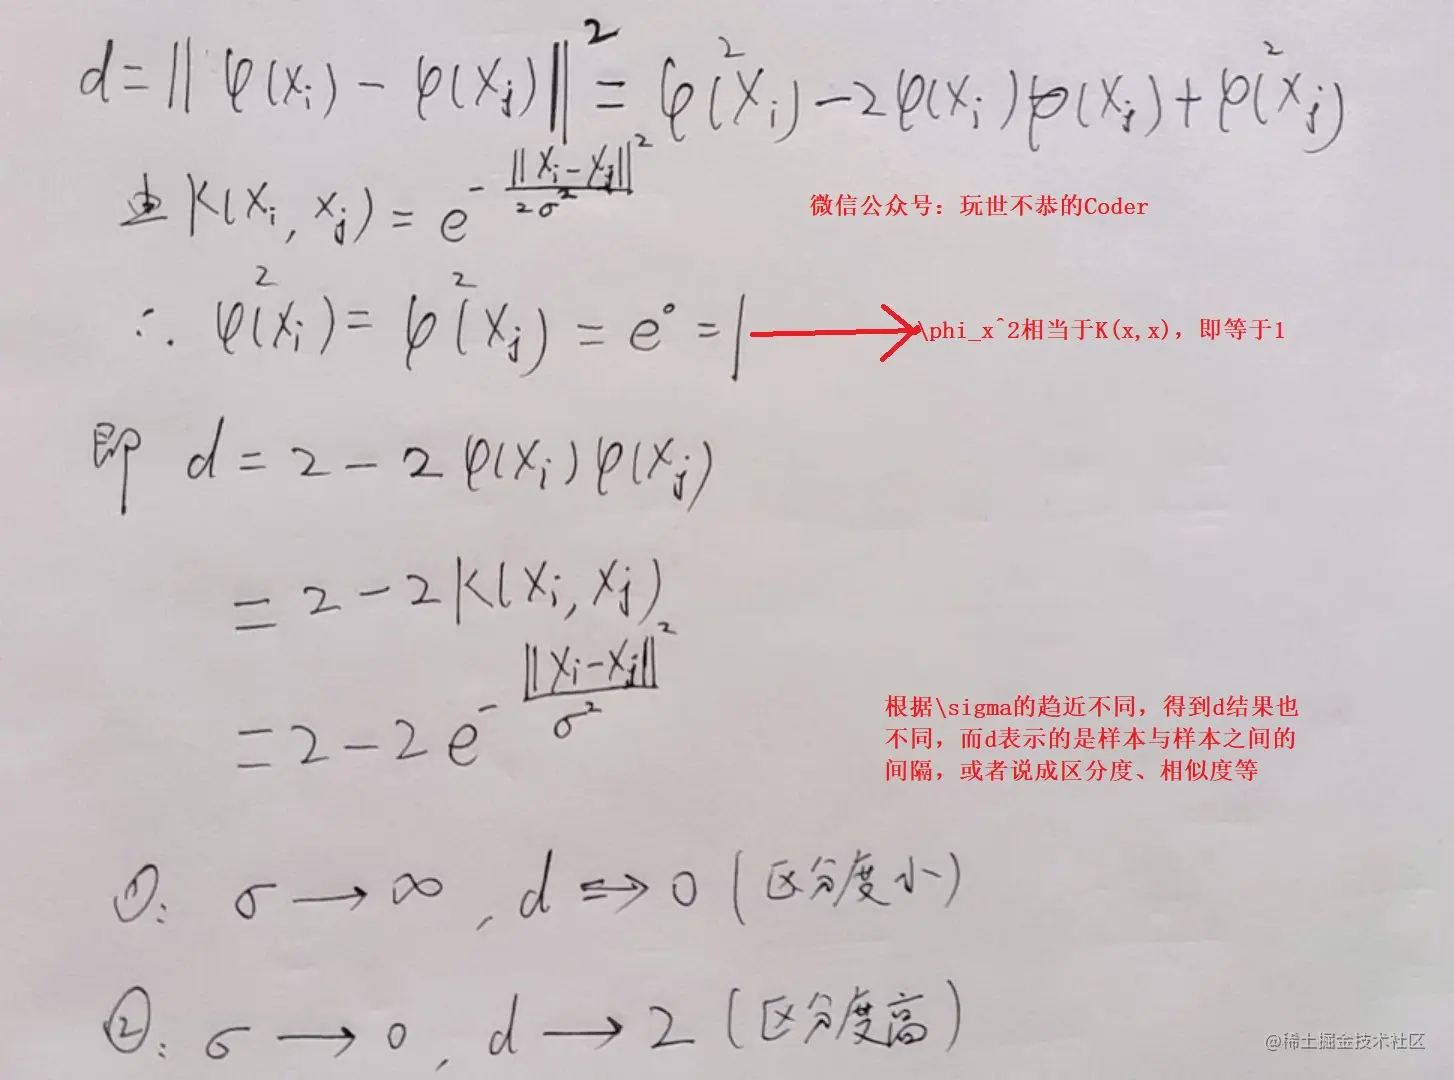 d = ||φ(x_i) - φ(x_j)||² = φ²(x_i) - 2φ(x_i)φ(x_j) + φ²(x_j)
由 K(x_i, x_j) = e^{-||x_i - x_j||² / 2σ²}
微信公众号：玩世不恭的Coder
∴ φ²(x_i) = φ²(x_j) = e^0 = 1
\phi_x^2相当于K(x,x)，即等于1
即 d = 2 - 2φ(x_i)φ(x_j)
= 2 - 2K(x_i, x_j)
= 2 - 2e^{-||x_i - x_j||² / σ²}
根据\sigma的趋近不同，得到d结果也
不同，而d表示的是样本与样本之间的
间隔，或者说成区分度、相似度等
①: σ → ∞, d ⇒ 0 (区分度小)
②: σ → 0, d → 2 (区分度高)
@稀土掘金技术社区